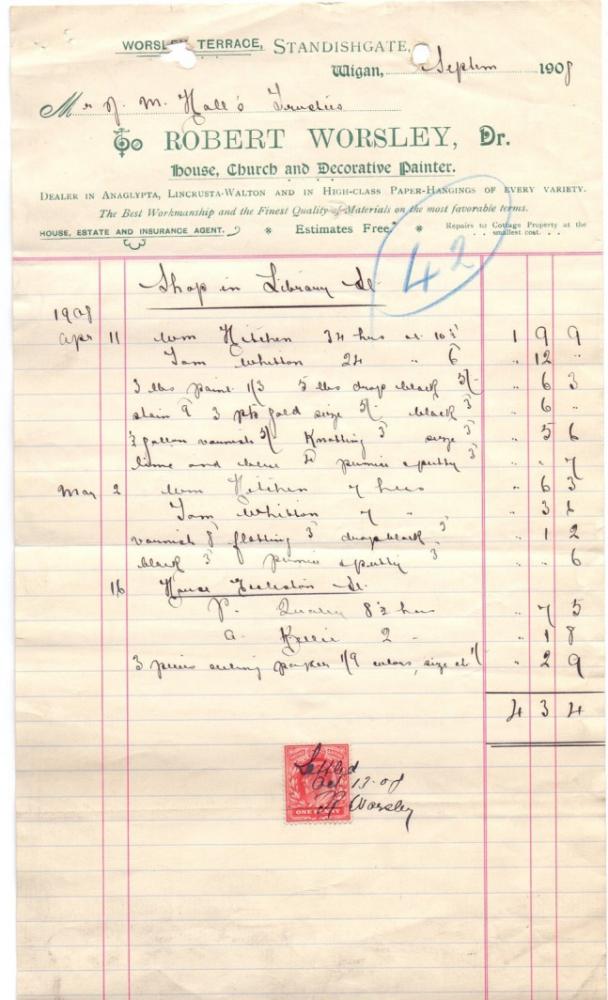 WORSLEY TERRACE, STANDISHGATE,
Wigan, Septem 1908
Mr J. M. Hall's Trustees
To ROBERT WORSLEY, Dr.
House, Church and Decorative Painter.
DEALER IN ANAGLYPTA, LINCRUSTA-WALTON AND IN HIGH-CLASS PAPER-HANGINGS OF EVERY VARIETY.
The Best Workmanship and the Finest Quality of Materials on the most favorable terms.
HOUSE, ESTATE AND INSURANCE AGENT. * Estimates Free. * Repairs to Cottage Property at the smallest cost. . .
42
Shop in Library St.
1908
Apr 11 Wm Hitchen 34 hrs at 10½ 1 9 9
Tom Whitton 24 " 6 " 12 "
3 lbs paint 1/3 5 lbs drop black 3/- " 6 3
stain 9 3 pts gold size 3/- black 3 " 6 "
½ gallon varnish 5/- Knotting 3 size 3 " 5 6
lime and blue 4 pumice & putty 3 " " 7
May 2 Wm Hitchen 7 hrs " 6 3
Tom Whitton 7 " " 3 6
varnish 8 flatting 3 drop black 3 " 1 2
black 3 pumice & putty 3 " " 6
16 House Eccleston St.
P. 8½ hrs " 7 5
A. 2 " " 1 8
3 pieces ceiling paper 1/9 colors, size et 1/ " 2 9
4 3 4
Settled
Oct 13-08
Worsley
ONE PENNY